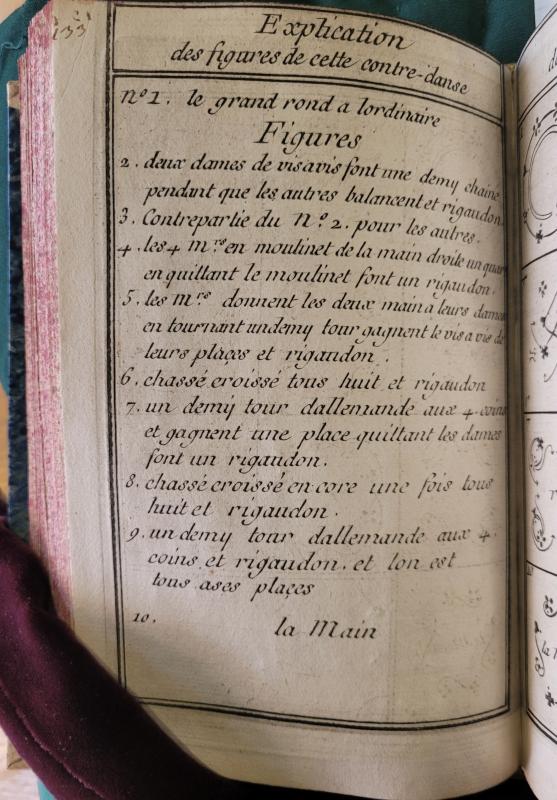 133
Explication
des figures de cette contre-danse
nº1. le grand rond a lordinaire
Figures
2. deux dames de visavis font une demy chaine
pendant que les autres balancent et rigaudon.
3. Contrepartie du Nº2. pour les autres.
4. les 4 mrs en moulinet de la main droite un quar
en quittant le moulinet font un rigaudon.
5. les mrs donnent les deux main a leurs dames
en tournant undemy tour gagnent le vis a vis de
leurs plaçes et rigaudon.
6. chassé croissé tous huit et rigaudon
7. un demy tour dallemande aux 4. coins
et gagnent une place quittant les dames
font un rigaudon.
8. chassé croissé en core une fois tous
huit et rigaudon.
9. un demy tour dallemande aux 4.
coins et rigaudon. et lon est
tous ases plaçes
10. la Main